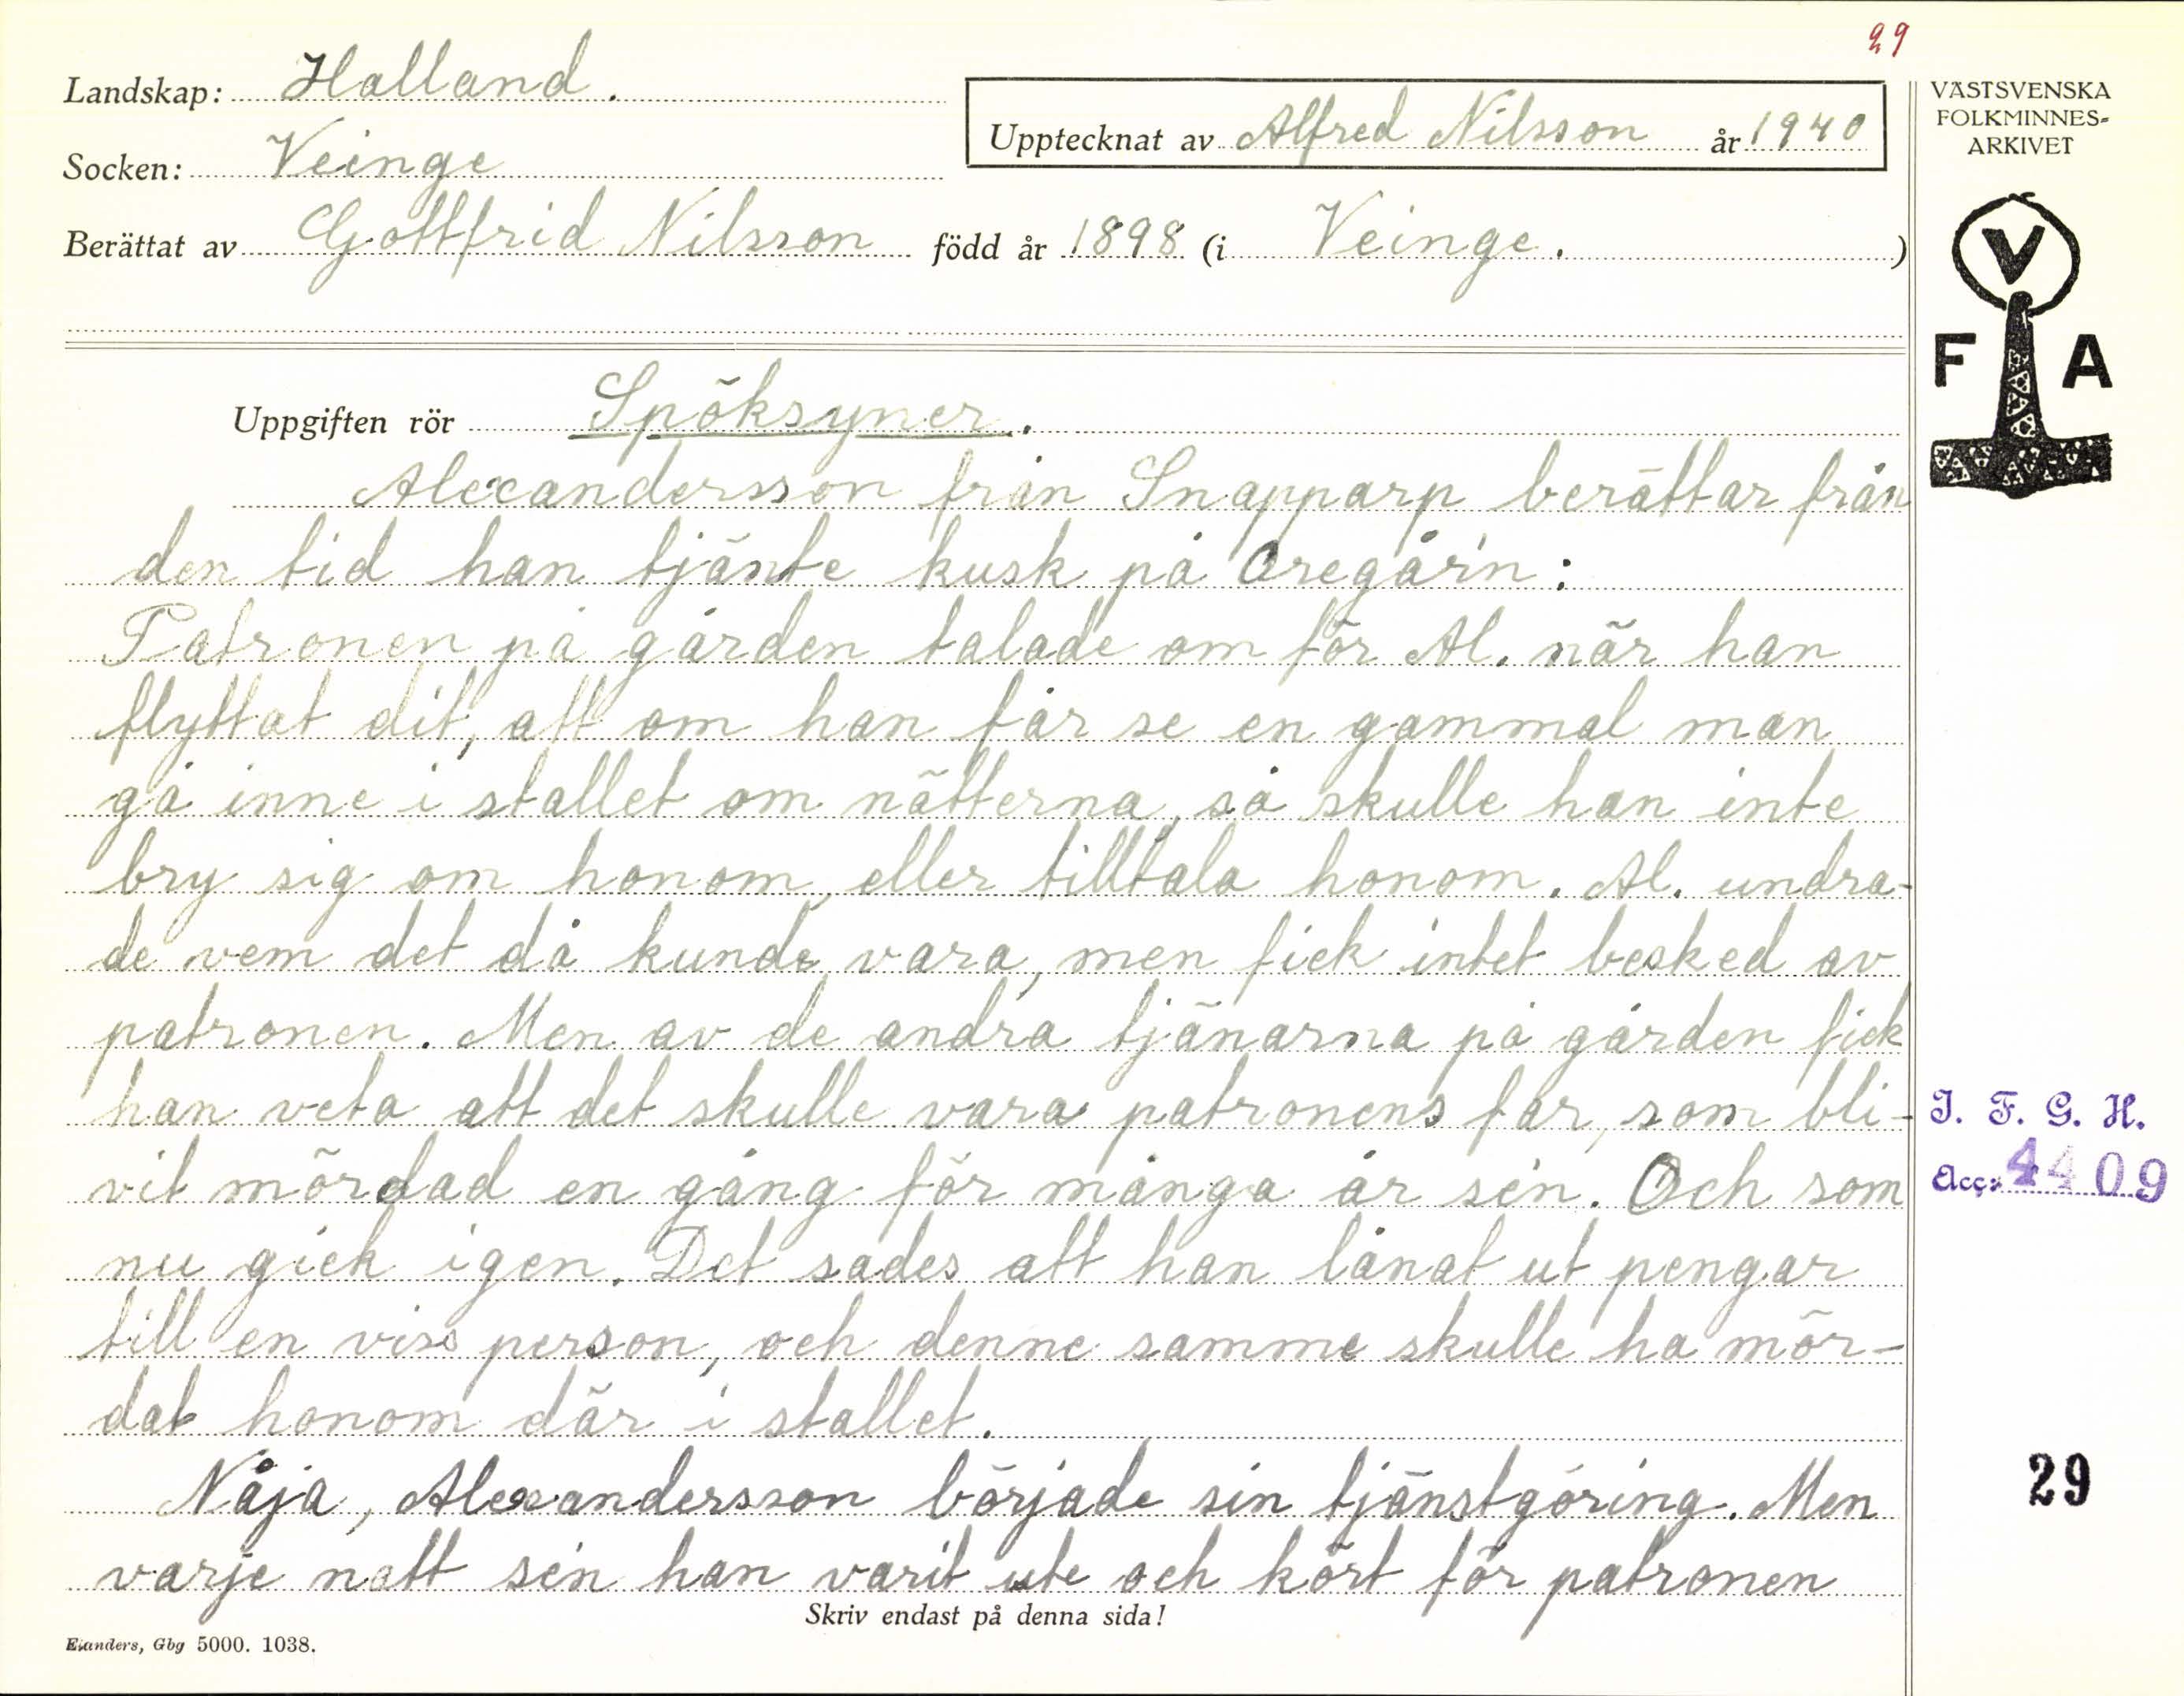 29
Landskap: Halland.
Upptecknat av Alfred Nilsson år 1940
Socken: Veinge
Berättat av Gottfrid Nilsson född år 1898 (i Veinge. )
VÄSTSVENSKA
FOLKMINNES-
ARKIVET
V
F A
Uppgiften rör Spöksyner.
Alexandersson från Snapparp berättar från
den tid han tjänte kusk på Oregår'n:
Patronen på gården talade om för Al. när han
flyttat dit, att om han får se en gammal man
gå inne i stallet om nätterna, så skulle han inte
bry sig om honom, eller tilltala honom. Al. undra-
de vem det då kunde vara, men fick intet besked av
patronen. Men av de andra tjänarna på gården fick
han veta att det skulle vara patronens far, som bli-
vit mördad en gång för många år sén. Och som
nu gick igen. Det sades att han lånat ut pengar
till en viss person, och denne samme skulle ha mör-
dat honom där i stallet.
Nåja, Alexandersson började sin tjänstgöring. Men
varje natt sén han varit ute och kört för patronen
Skriv endast på denna sida!
Elanders, Gbg 5000. 1038.
I. F. G. H.
Acc: 4409
29